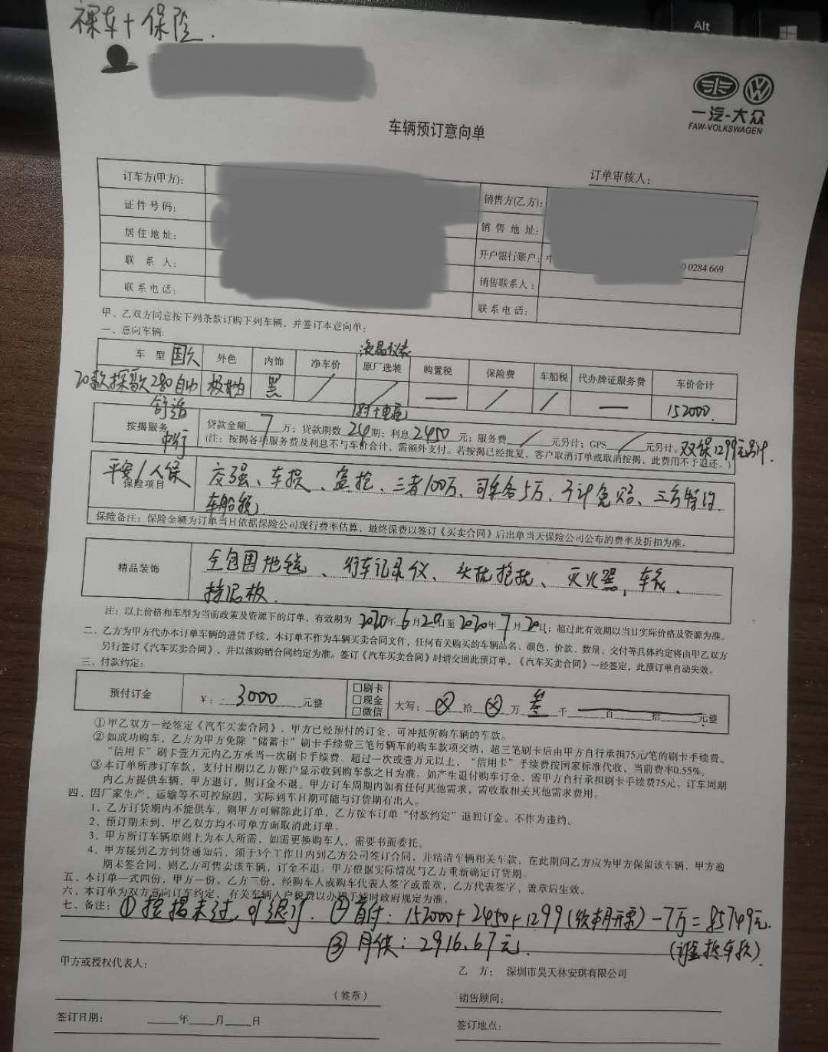 裸车+保险.
一汽-大众
FAW-VOLKSWAGEN
车辆预订意向单
订单审核人：
订车方(甲方)：
销售方(乙方)：
证件号码：
销售地址：
居住地址：
开户银行账户：
0284 669
联系人：
销售联系人：
联系电话：
联系电话：
甲、乙双方同意按下列条款订购下列车辆，并签订本意向单：
一、意向车辆
车型 国六 外色 内饰 净车价 原厂选装 液晶仪表 购置税 保险费 车船税 代办牌证服务费 车价合计
20款探歌280自动 舒适 极地白 黑 / / — / / — 152000.
按揭服务 贷款金额 7 万；贷款期数 24 期；利息 2450 元；服务费 / 元另计；GPS / 元另计. 双保1299元另计.
(注：按揭各丰服务费及利息不与车价合计，需额外支付。若按揭已经批复，客户取消订单或取消按揭，此费用不予退还。)
平安/人保
保险项目 交强、车损、盗抢、三者100万、司乘各5万、不计免赔、三方特约
车船税
保险备注：保险金额为订单当日依据保险公司现行费率估算，最终保费以签订《买卖合同》后出单当天保险公司公布的费率及折扣为准。
精品装饰 全包围地毯、行车记录仪、头枕抱枕、灭火器、车衣、
挡泥板
注：以上价格和车型为当前政策及资源下的订单，有效期为2020年6月29日至2020年7月20日；超过此有效期以当日实际价格及资源为准。
二、乙方为甲方代办本订单车辆的进货手续，本订单不作为车辆买卖合同文件，任何有关购买的车辆品名、颜色、价款、数量、交付等具体约定将由甲乙双方
另行签订《汽车买卖合同》，并以该购销合同约定为准。签订《汽车买卖合同》时请交回此预订单，《汽车买卖合同》一经签定，此预订单自动失效。
三、付款约定：
预付订金 ￥： 3000 元整 □刷卡 □现金 □微信 大写： 拾 万 叁 千 百 拾 元整
①甲乙双方一经签定《汽车买卖合同》，甲方已经预付的订金，可冲抵所购车辆的车款。
②如成功购车，乙方为甲方免除“储蓄卡”刷卡手续费三笔每辆车的购车款项交纳，超三笔刷卡后由甲方自行承担75元/笔的刷卡手续费。
“信用卡”刷卡壹万元内乙方承当一次刷卡手续费。超过一次或壹万元以上，“信用卡”手续费按国家标准代收，当前费率0.55%。
③本订单所涉订车款，支付日期以乙方账户显示收到购车款之日为准。如产生退付购车订金，需甲方自行承担刷卡手续费75元，订车周期
内乙方提供车辆，甲方退订，则订金不退。甲方订车周期内如有任何其他需求，需收取相关其他需求费用。
四、因厂家生产、运输等不可控原因，实际到车日期可能与订货期有出入。
1、乙方订货期内不能供车，则甲方可解除此订单，乙方按本订单“付款约定”退回订金。不作为违约。
2、预订期未到，甲乙双方均不可单方面取消此订单。
3、甲方所订车辆原则上为本人所需，如需更换购车人，需要书面委托。
4、甲方接到乙方到货通知后，须于3个工作日内到乙方公司签订合同，并结清车辆相关车款，在此期间乙方应为甲方保留该车辆，甲方逾
期未签合同，则乙方可售卖该车辆，订金不退。甲方根据实际情况与乙方重新确定订货期。
五、本订单一式四份，甲方一份，乙方三份，经购车人或购车代表人签字或盖章，乙方代表签字，盖章后生效。
六、本订单为双方意向订车约定，有关车辆入户税费以办理手续时政府规定为准。
七、备注：①按揭未过，可退订. ②首付：152000+2450+1299(钦本月开票)-7万=85749元.
③月供：2916.67元. (订金抵车款)
甲方或授权代表人：
乙 方： 深圳市昊天林安琪有限公司
(签章)
销售顾问：
签订日期： 年 月 日
签订地点：